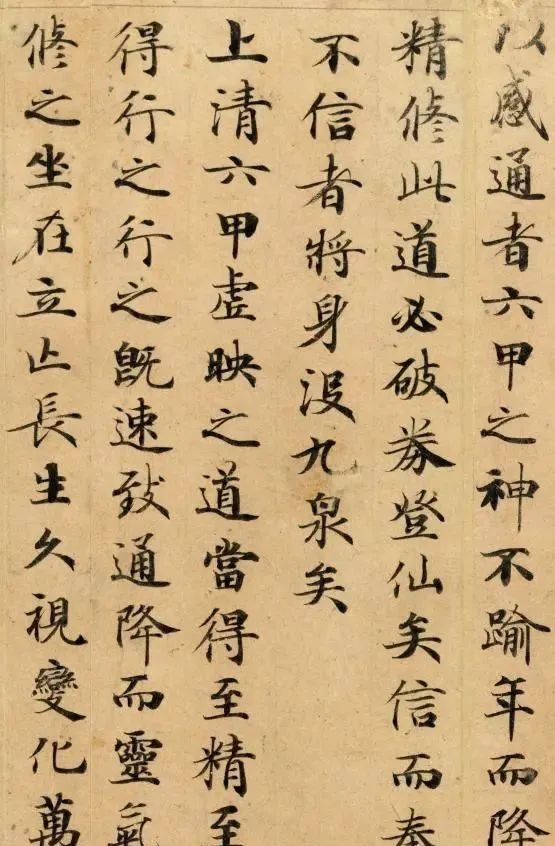 以感通者六甲之神不踰年而降
精修此道必破券登仙矣信而奉
不信者將身沒九泉矣
上清六甲虛映之道當得至精至
得行之行之既速致通降而靈氣
修之坐在立亡長生久視變化萬